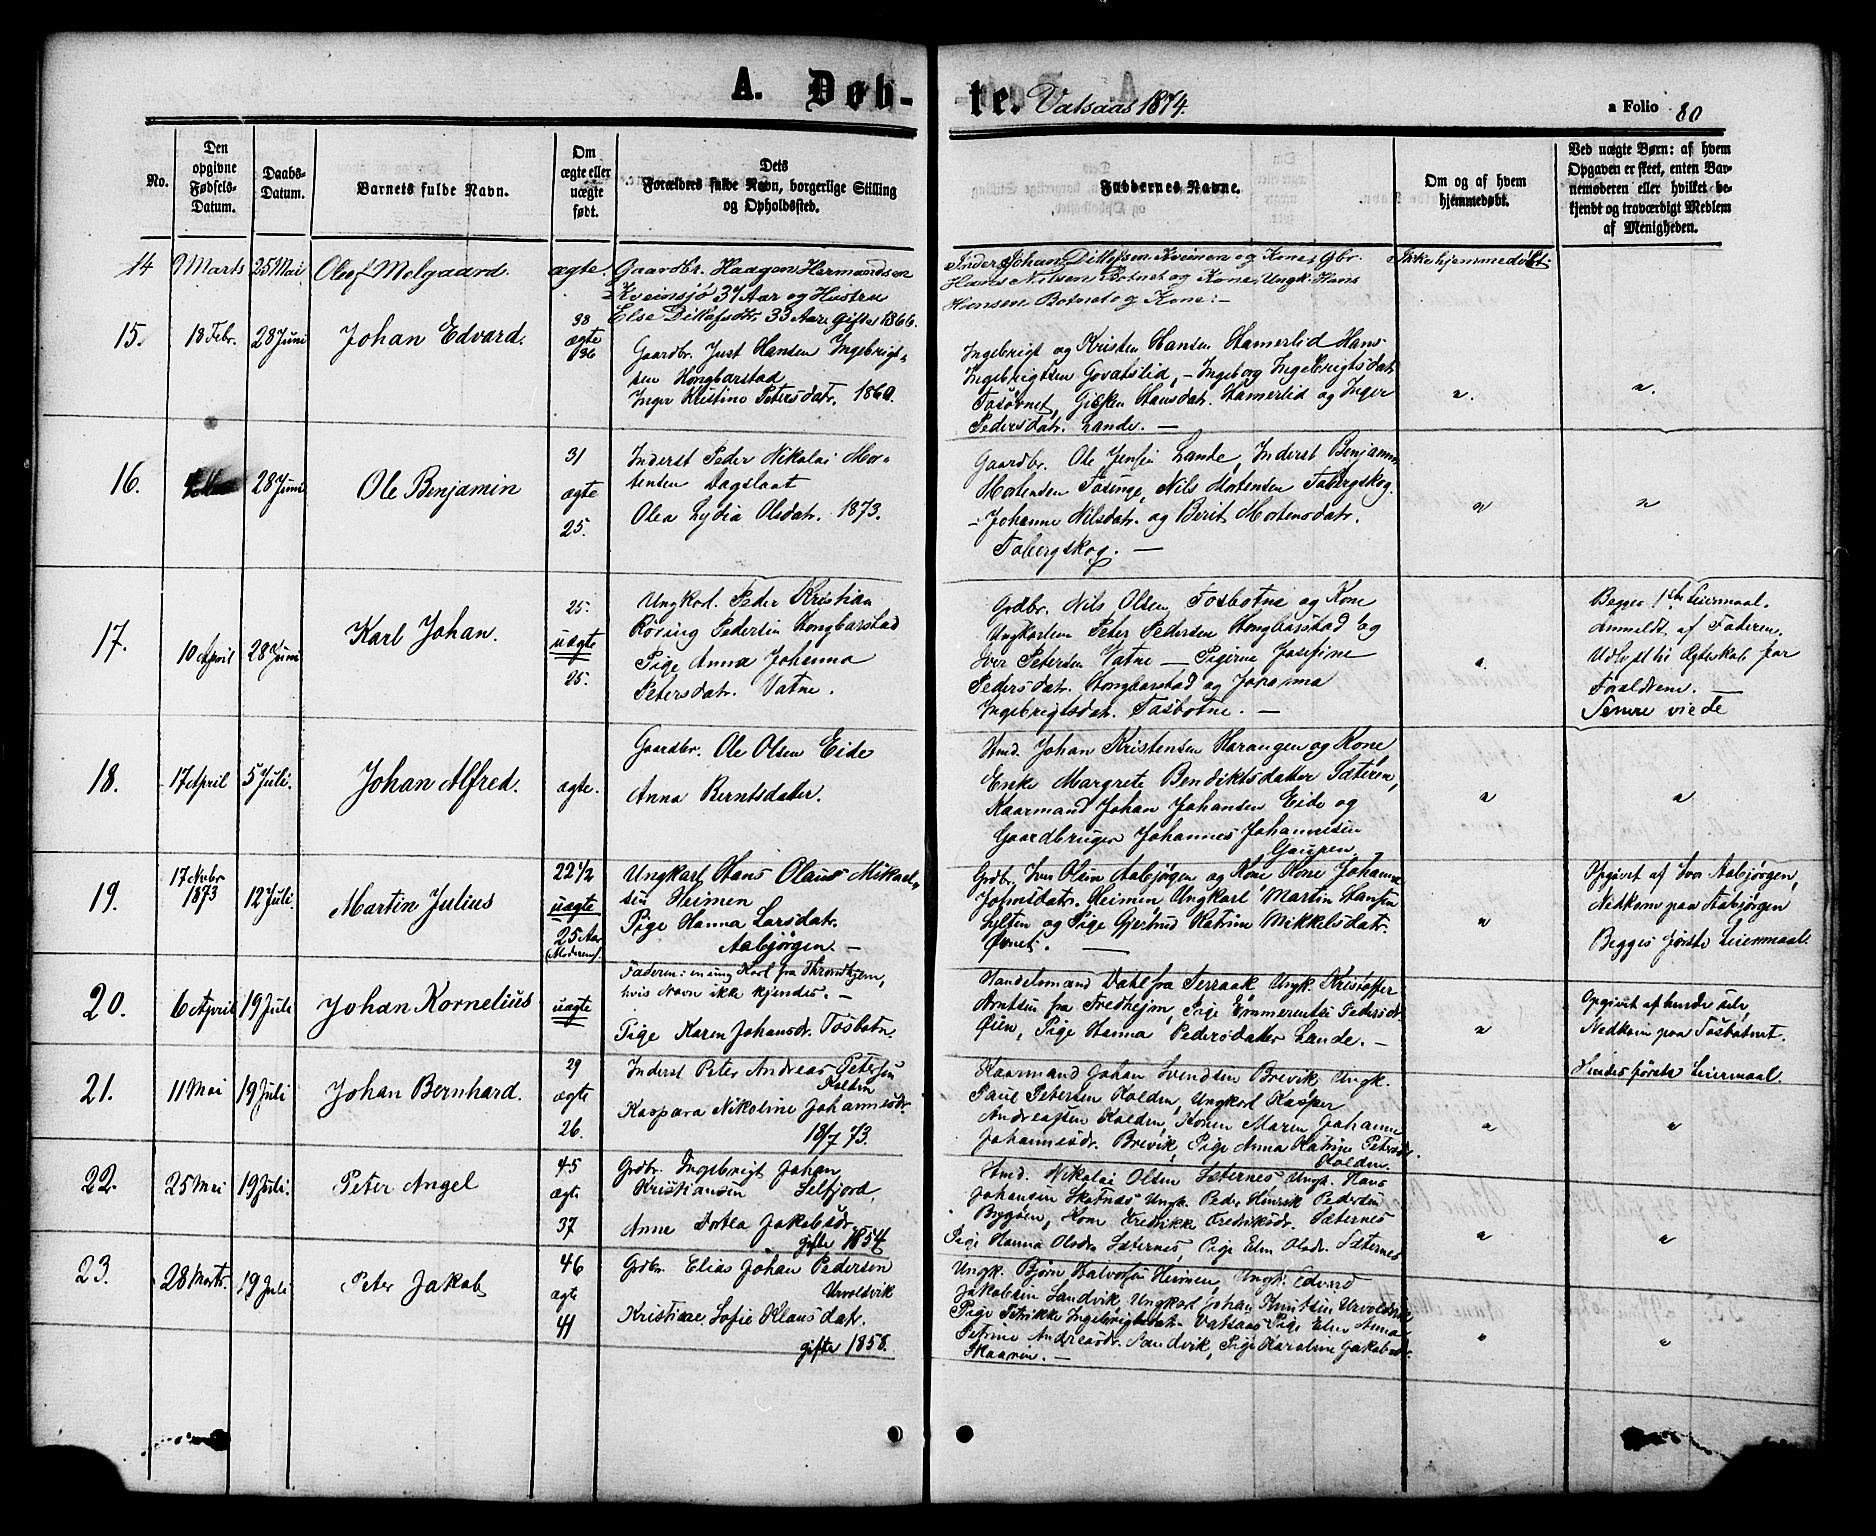 A. Døb-
te. Vatsaas 1874.
a Folio 80
No.
Den opgivne Fødsels-Datum.
Daabs-Datum.
Barnets fulde Navn.
Om ægte eller uægte født.
Dets Forældres fulde Navn, borgerlige Stilling og Opholdssted.
Faddernes Navne.
Om og af hvem hjemmedøbt.
Ved uægte Børn: af hvem Opgaven er skeet, enten Barnemoderen eller hvilket bekjendt og troværdigt Medlem af Menigheden.
14 Marts 25 Mai Oleof Melgaard. ægte.
Gaardbr. Haagen Hermandsen
Kveinsjö 37 Aar og Hustru
Else Ditlefsdtr. 33 Aar. Gifte 1866.
Inders Johan Ditlefsen Kveinen og Kone, Gbr.
Hans Nilsen Botnet og Kone, Ungk. Hans
Hansen Botnet og Kone: -
Ikke hjemmedöbt.
15. 18 Febr. 28 Juni Johan Edvard. 38 ægte 36
Gaardbr. Just Hansen Ingebrigt-
sen Hongbarstad
Inger Kristine Petersdatr. 1860.
Ingebrigt og Kristen Hansen Hamerlid Hans
Ingebrigtsen Govatslid, - Ingeborg Ingebrigtsdatr
Fosövnet, Gisken Hansdatr. Hamerlid og Inger
Pedersdatr. Lande. -
16. 28 Juni Ole Benjamin 31 ægte 25.
Inderst Peder Nikolai Mor-
tensen Dagslaat
Olea Lydia Olsdatr. 1873.
Gaardbr. Ole Jensen Lande, Inderst Benjamin
Mortensen Fosinge, Nils Mortensen Fabergskog.
- Johanne Nilsdatr. og Berit Mortensdatr.
Fabergskog. -
17. 10 April 28 Juni Karl Johan. 25. uægte 25.
Ungkarl. Peder Kristian
Röring Pedersen Hongbarstad
Pige Anna Johanna
Petersdatr. Vatne.
Grdbr. Nils Olsen Fosbotne og Kone
Ungkarlene Peter Pedersen Hongbarstad og
Iver Petersen Vatne - Pigerne Josefine
Pedersdatr. Hongbarstad og Johanna
Ingebrigtsdatr. Fosbotne. -
Begges 1ste Leiermaal.
Anmeldt af Faderen.
Udlyst til Ægteskab for
Forældrene. -
Senere viede
18. 17 April 5 Juli. Johan Alfred. ægte.
Gaardbr. Ole Olsen Eide
Anna Berntsdatter.
Hmd. Johan Kristensen Harangen og Kone
Enke Margrete Bendiktsdatter Sæteren,
Kaarmand Johan Johansen Eide og
Gaardbruger Johannes Johannesen
Gaupen
19. 17 Novbr 1873 12 Juli. Martin Julius 22 1/2 uægte 25 Aar (Moderen)
Ungkarl Hans Olaus Mikael-
sen Heimen
Pige Hanna Larsdatr.
Aabjørgen. -
Grdbr. Iver Olsen Aabjørgen og Kone Kone Johanna
Johnsdatr. Heimen, Ungkarl Martin Hansen
og Pige Gjertrud Katrine Mikkelsdatr.
Opgivet af Iver Aabjørgen,
Nedkom paa Aabjørgen
Begges første Leiermaal.
20. 6 April 19 Juli Johan Kornelius uægte
Faderen: en ung Karl fra Throndhjem,
hvis Navn ikke kjendes. -
Pige Karen Johansdr. Tosbotn.
Handelsmand Dahl fra Terraak Ungk. Kristoffer
Arntsen fra Fredhejm, Pige Emmerentse Pedersdr.
Øien, Pige Hanna Pedersdatter Lande. -
Opgivet af hende selv,
Nedkom paa Tosbotnet.
Hendes første Leiermaal.
21. 11 Mai 19 Juli Johan Bernhard. 29 ægte 26.
Inderst Peter Andreas Petersen
Kolden
Kaspara Nikoline Johannesdr.
18/7 73.
Kaarmand Johan Svendsen Brevik Ungk.
Paul Petersen Kolden, Ungkarl Kasper
Andreassen Kolden, Konen Maren Johanne
Johannesdr. Brevik, Pige Anna Katrine Petersdr.
Kolden.
22. 25 Mai 19 Juli. Peter Angel 45 ægte 37
Grdbr. Ingebrigt Johan
Kristiansen Selfjord,
Anne Dortea Jakobsdr.
gifte 1854
Hmd. Nikolai Olsen Sæternes Ungk. Hans
Johansen Skotnes Ungk. Peder Henrik Pedersen
Bygöen, Kone Fredrikke Fredriksdr. Sæternes
Pige Hanna Olsdr. Sæternes, Pige Elen Olsdr. Sæternes
23. 28 Marts. 19 Juli Peter Jakob 46 ægte 41
Grdbr. Elias Johan Pedersen
Urvoldvik
Kristiane Sofie Klausdatr.
gifte 1858.
Ungk. Bjørn Halvorsen Heimen, Ungk. Edvard
Jakobsen Sandvik, Ungkarl Johan Knutsen Urvoldvik
Pige Petrikke Ingebrigtsdatr. Vatsaas Pige Elen Anna
Petrine Andreasdr. Sandvik, Pige Karoline Jakobsdr.
Skaaren. -